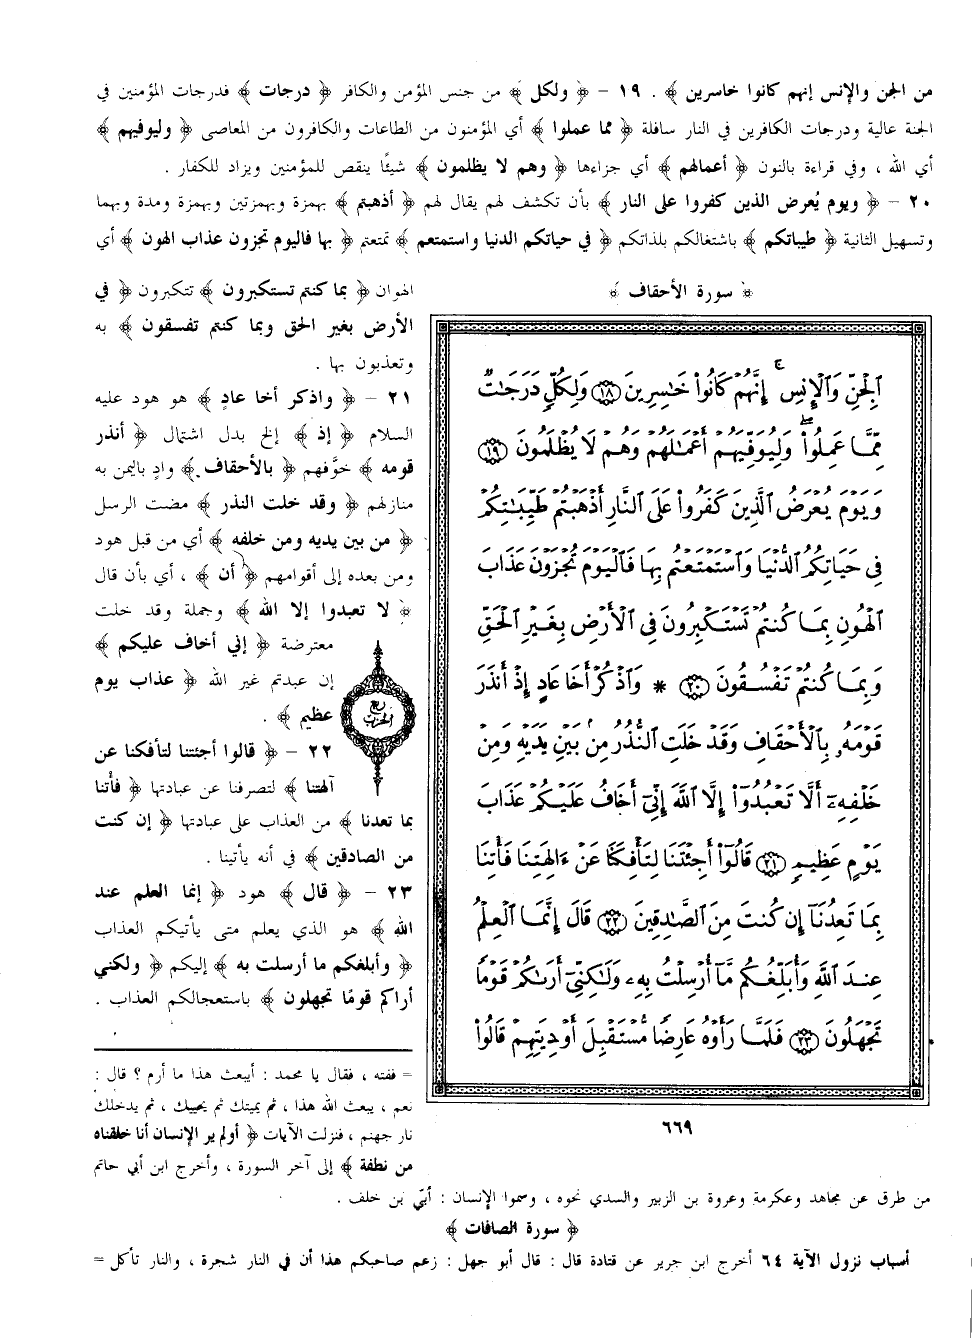 من الجن والإنس إنهم كانوا خاسرين ﴾ . ١٩ - ﴿ ولكل ﴾ من جنس المؤمن والكافر ﴿ درجات ﴾ فدرجات المؤمنين في
الجنة عالية ودرجات الكافرين في النار سافلة ﴿ مما عملوا ﴾ أي المؤمنون من الطاعات والكافرون من المعاصي ﴿ وليوفيهم ﴾
أي الله ، وفي قراءة بالنون ﴿ أعمالهم ﴾ أي جزاءها ﴿ وهم لا يظلمون ﴾ شيئًا ينقص للمؤمنين ويزاد للكفار .
٢٠ - ﴿ ويوم يُعرض الذين كفروا على النار ﴾ بأن تكشف لهم يقال لهم ﴿ أذهبتم ﴾ بهمزة وبهمزتين وبهمزة ومدة وبهما
وتسهيل الثانية ﴿ طيباتكم ﴾ باشتغالكم بلذاتكم ﴿ في حياتكم الدنيا واستمتعم ﴾ تمتعتم ﴿ بها فاليوم تجزون عذاب الهون ﴾ أي
الهوان ﴿ بما كنتم تستكبرون ﴾ تتكبرون ﴿ في
الأرض بغير الحق وبما كنتم تفسقون ﴾ به
وتعذبون بها .
٢١ - ﴿ واذكر أخا عادٍ ﴾ هو هود عليه
السلام ﴿ إذ ﴾ إلخ بدل اشتمال ﴿ أنذر
قومه ﴾ خوَّفهم ﴿ بالأحقاف ﴾ وادٍ باليمن به
منازلهم ﴿ وقد خلت النذر ﴾ مضت الرسل
﴿ من بين يديه ومن خلفه ﴾ أي من قبل هود
ومن بعده إلى أقوامهم ﴿ أن ﴾ ، أي بأن قال
﴿ لا تعبدوا إلا الله ﴾ وجملة وقد خلت
معترضة ﴿ إني أخاف عليكم ﴾
إن عبدتم غير الله ﴿ عذاب يوم
عظيم ﴾ .
٢٢ - ﴿ قالوا أجئتنا لتأفكنا عن
آلهتنا ﴾ لتصرفنا عن عبادتها ﴿ فأتنا
بما تعدنا ﴾ من العذاب على عبادتها ﴿ إن كنت
من الصادقين ﴾ في أنه يأتينا .
٢٣ - ﴿ قال ﴾ هود ﴿ إنما العلم عند
الله ﴾ هو الذي يعلم متى يأتيكم العذاب
﴿ وأبلغكم ما أرسلت به ﴾ إليكم ﴿ ولكني
أراكم قومًا تجهلون ﴾ باستعجالكم العذاب .
ربع
الحزب
﴿ سورة الأحقاف ﴾
ٱلْجِنِّ وَٱلْإِنسِ ۖ إِنَّهُمْ كَانُوا۟ خَـٰسِرِينَ ١٨ وَلِكُلٍّ دَرَجَـٰتٌ
مِّمَّا عَمِلُوا۟ ۖ وَلِيُوَفِّيَهُمْ أَعْمَـٰلَهُمْ وَهُمْ لَا يُظْلَمُونَ ١٩
وَيَوْمَ يُعْرَضُ ٱلَّذِينَ كَفَرُوا۟ عَلَى ٱلنَّارِ أَذْهَبْتُمْ طَيِّبَـٰتِكُمْ
فِى حَيَاتِكُمُ ٱلدُّنْيَا وَٱسْتَمْتَعْتُم بِهَا فَٱلْيَوْمَ تُجْزَوْنَ عَذَابَ
ٱلْهُونِ بِمَا كُنتُمْ تَسْتَكْبِرُونَ فِى ٱلْأَرْضِ بِغَيْرِ ٱلْحَقِّ
وَبِمَا كُنتُمْ تَفْسُقُونَ ٢٠ * وَٱذْكُرْ أَخَا عَادٍ إِذْ أَنذَرَ
قَوْمَهُۥ بِٱلْأَحْقَافِ وَقَدْ خَلَتِ ٱلنُّذُرُ مِنۢ بَيْنِ يَدَيْهِ وَمِنْ
خَلْفِهِۦٓ أَلَّا تَعْبُدُوٓا۟ إِلَّا ٱللَّهَ إِنِّىٓ أَخَافُ عَلَيْكُمْ عَذَابَ
يَوْمٍ عَظِيمٍ ٢١ قَالُوٓا۟ أَجِئْتَنَا لِتَأْفِكَنَا عَنْ ءَالِهَتِنَا فَأْتِنَا
بِمَا تَعِدُنَآ إِن كُنتَ مِنَ ٱلصَّـٰدِقِينَ ٢٢ قَالَ إِنَّمَا ٱلْعِلْمُ
عِندَ ٱللَّهِ وَأُبَلِّغُكُم مَّآ أُرْسِلْتُ بِهِۦ وَلَـٰكِنِّىٓ أَرَىٰكُمْ قَوْمًا
تَجْهَلُونَ ٢٣ فَلَمَّا رَأَوْهُ عَارِضًا مُّسْتَقْبِلَ أَوْدِيَتِهِمْ قَالُوا۟
٦٦٩
= ففته ، فقال يا محمد : أيبعث هذا ما أرم ؟ قال :
نعم ، يبعث الله هذا ، ثم يميتك ثم يحييك ، ثم يدخلك
نار جهنم ، فنزلت الآيات ﴿ أولم ير الإنسان أنا خلقناه
من نطفة ﴾ إلى آخر السورة ، وأخرج ابن أبي حاتم
من طرق عن مجاهد وعكرمة وعروة بن الزبير والسدي نحوه ، وسموا الإنسان : أُبيّ بن خلف .
﴿ سورة الصافات ﴾
أسباب نزول الآية ٦٤ أخرج ابن جرير عن قتادة قال : قال أبو جهل : زعم صاحبكم هذا أن في النار شجرة ، والنار تأكل =